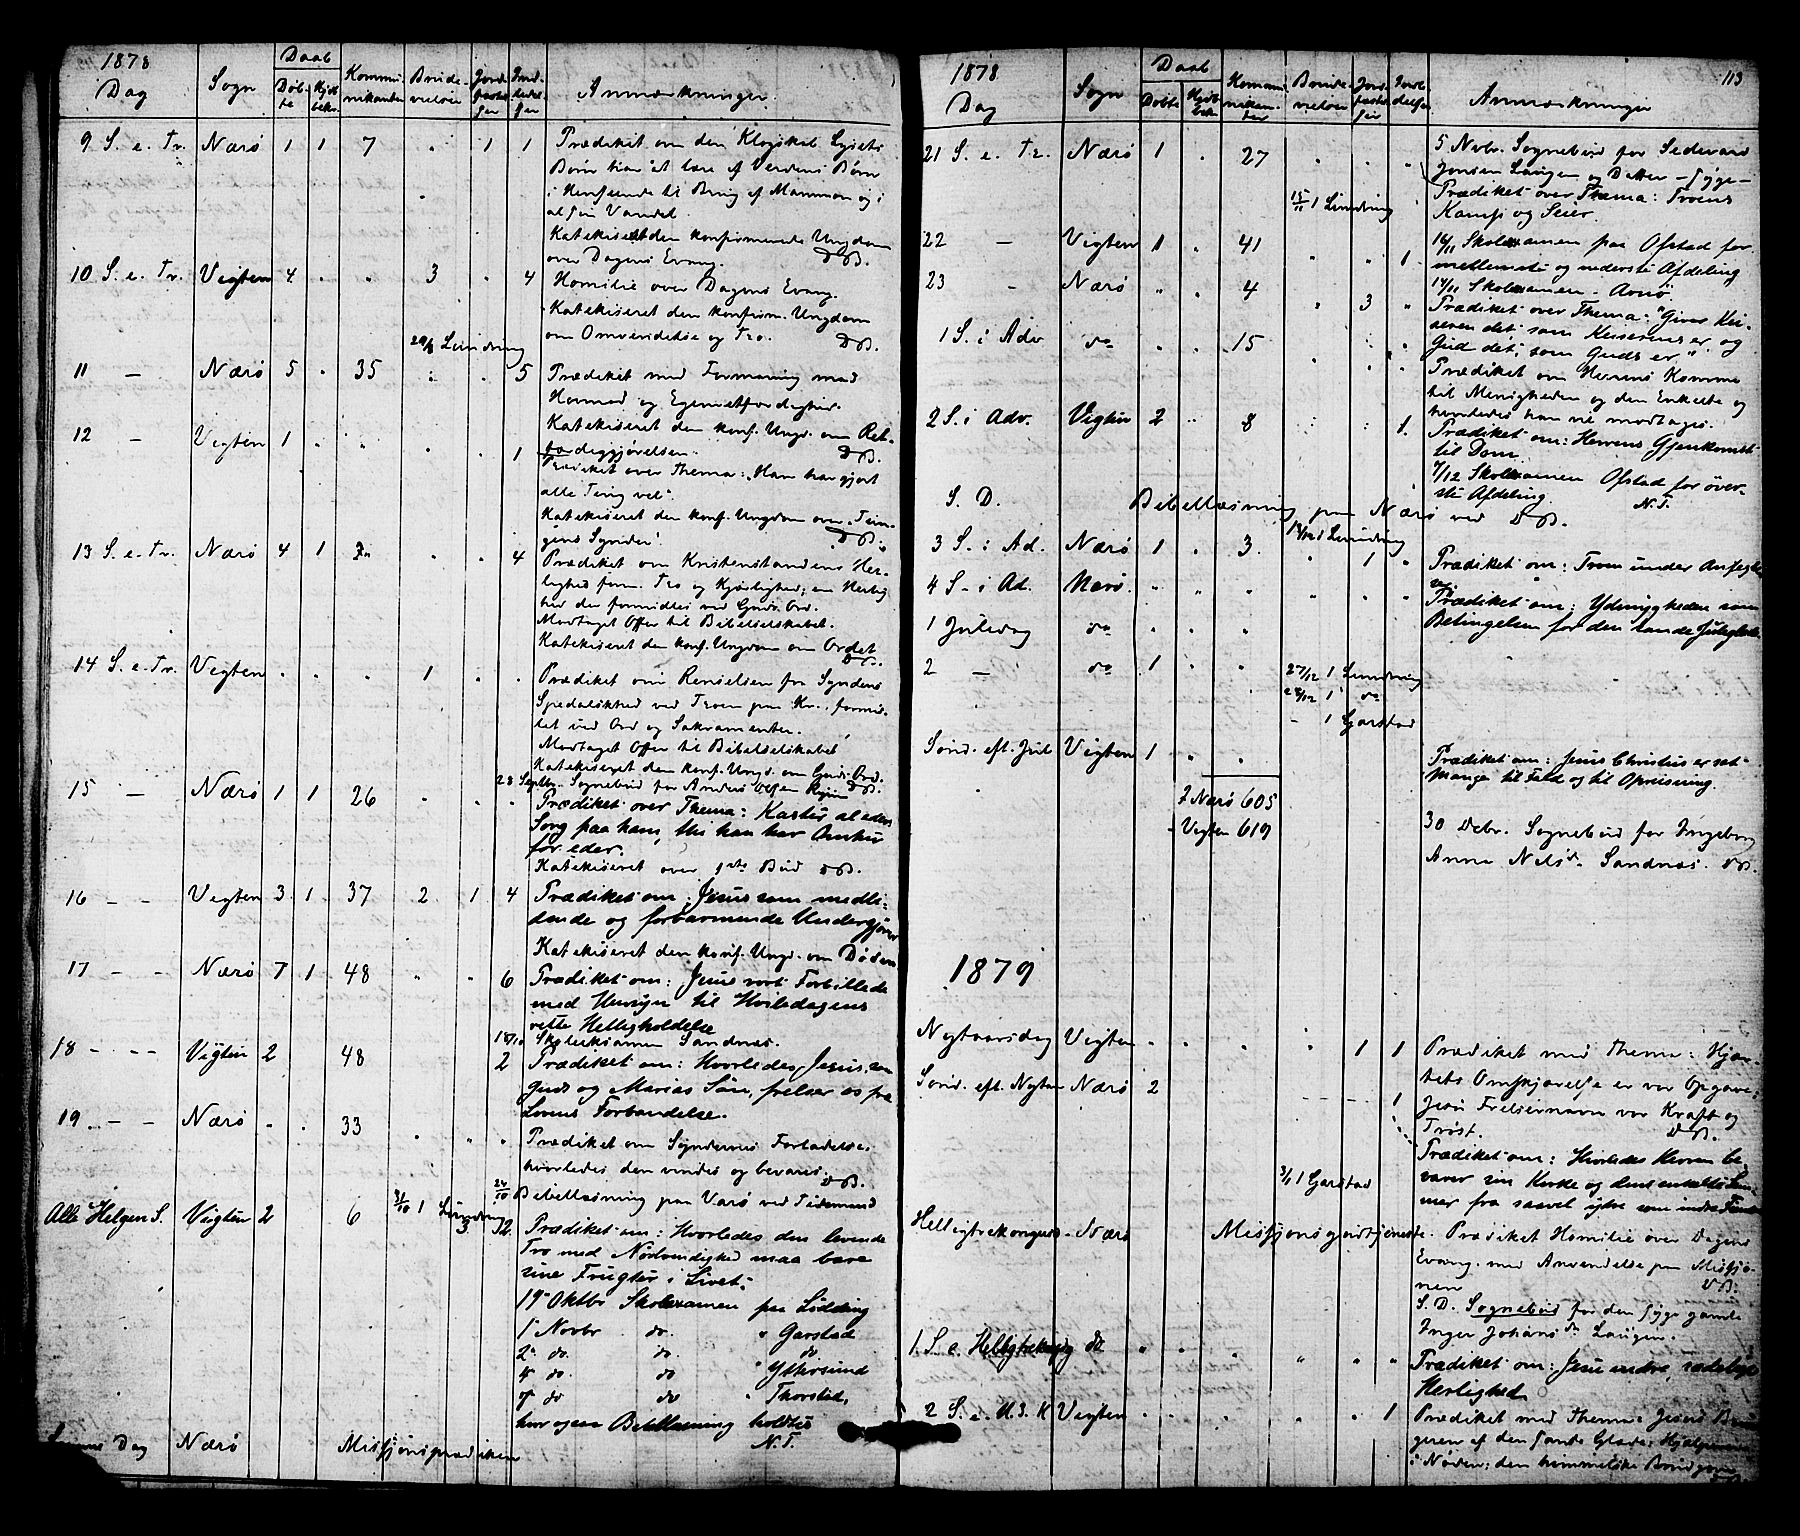 1878
Dag
Sogn
Daab
Døbte
Hjdbek.
Kommunikanter
Brudevielser
Jordfæstelser
Indledelser
Anmærkninger.
9 S. e. Tr. Nærø 1 1 7 " 1 1
Prædiket om den Klogskab Lysets
Børn har at lære af Verdens Børn
i Henseende til Brug af Mammon og i
al sin Vandel.
Katekiseret den konfirmerede Ungdom
over Dagens Evang. DB.
10 S. e. Tr. Vigten 4 " " 3 " 4
Homilie over Dagens Evang.
Katekiseret den konfirm. Ungdom
om Omvendelse og Tro. DB.
11 — Nærø 5 " 35 " " 5
Prædiket med Formaning mod
Hovmod og Egenretfærdighed.
Katekiseret den konf. Ungd. om Retfærdiggjørelsen. DB.
12 — Vigten 1 " " " " 1
Prædiket over Thema: "Ham har gjort
alle Ting vel".
Katekiseret den konf. Ungdom over
DB.
13 S. e. Tr. Nærø 4 1 " " 4
Prædiket om Kristenstandens Herlighed
Tro og Kjærlighed; en Herlighed
der formidles ved Guds Ord.
Modtaget Offer til Bibelselskabet.
Katekiseret den konf. Ungdom om Ordet
DB.
14 S. e. Tr. Vigten " " " 1 " "
Prædiket om Renselsen fra Syndens
Spedalskhed ved Troen paa Kr.,
ved Ord og Sakramenter.
Modtaget Offer til Bibelselskabet
Katekiseret den konf. Ungd. om Guds Ord.
15 — Nærø 1 1 26 " " "
28 Septbr. Sognebud for Anders DB.
Prædiket over Thema: Kaster al eders
Sorg paa ham, thi han har Omhu
for eder.
Katekiseret over 1ste Bud DB.
16 - - Vigten 3 1 37 2 1 4
Prædiket om: Jesus som medlidende
og forbarmende Undergjører
Katekiseret den konf. Ungd. om Døden
17 - - Nærø 7 1 48 " " 6
Prædiket om: Jesus vort Forbillede
med Hensyn til Hviledagens
rette Helligholdelse
18/10 Skoleeksamen Sandnæs.
18 - - - Vigten 2 48 2
Prædiket om: Hvorledes Jesus, som
Guds og Marias Søn, frelser os fra
Lovens Forbandelse.
19 - - - Nærø " " 33 " " "
Prædiket om Syndernes Forladelse,
hvorledes den vindes og bevares. DB.
24/10 Bibellæsning paa Varø ved Tidemand
Alle Helgen S. Vigten 2 6 31/10 1 3 2
Prædiket om: Hvorledes den levende
Tro med Nødvendighed maa bære
sine Frugter i Livet.
19 Oktbr Skolexamen paa Lødding
1 Novbr do. " Garstad
2 do do. do
4 do. do " Yttersund
7 do do " Thorstad,
hvor ogsaa Bibellæsning holdtes
N.T.
Dag Nærø Missjonsprædiken
1878
Dag
Sogn
Daab
Døbte
Hjdbek.
Kommunikanter
Brudevielser
Jordfæstelser
Indledelser
Anmærkninger
113
21 S. e. Tr. Nærø 1 " 27 " " "
5 Novbr. Sognebud for Sedevard
Jonsen Laugen og Datter - syge -
Prædiket over Thema: Troens
Kamp og Seier.
22 — Vigten 1 " 41 " " 1
16/11 Skolexamen paa Ofstad for
mellemste og nederste Afdeling
23 — Nærø " " 4 " 3 "
Skolexamen - Avnø.
Prædiket over Thema: "Giver Keiseren
det som Keiserens er og
Gud det, som Guds er".
1 S. i Adv do " " 15 " " "
Prædiket om Herrens Komme
til Menigheden og den Enkelte og
hvorledes han vil modtages.
2 S. i Adv. Vigten 2 " 8 " " 1.
Prædiket om: Herrens Gjenkomst
til Dom.
7/12 Skolexamen Ofstad for øverste
Afdeling. N.T.
S. D. Bibellæsning paa Nærø ved DB.
3 S. i Ad. Nærø 1 " 3 " 1 "
Prædiket om: Troen under Anfegtelser.
4 S. i Ad. Nærø " " " " " "
Prædiket om: Ydmygheden som
Betingelsen for den sande Juleglæde.
1 Juledag do " " "
2 — do 1 " "
27/12 1
28/12 1 do
- 1 Garstad
Sønd. eft. Jul Vigten 1 " "
Prædiket om: Jesus Christus er sat
Mange til Fald og til Opreisning.
Nærø 605
Vigten 619
30 Debr. Sognebud for Ingeborg
Anna Nilsd. Sandnæs. DB.
1879
Nytaarsdag Vigten " " " " 1 1
Prædiket med Thema: Hjertets
Omskjærelse er vor Opgave;
Jesu Frelsernavn vor Kraft og
Trøst. DB.
Sønd. eft. Nytaar Nærø 2 - - - 1
Prædiket om: Hvorledes Herren bevarer
sin Kirke og dens enkelte Lemmer
fra saavel ydre som indre Fiender
3/1 1 Garstad
Helligtrekongers- Nærø Missjonsgudstjeneste.
Prædiket Homilie over Dagens
Evang. med Anvendelse paa Missjonen
DB.
S. D. Sognebud for den syge gamle
Inger Johans d. Laugen.
1 S e Helligtrekongdg do " " " " " "
Prædiket om: Jesu
Herlighed
2 S. e. H. 3. K Vigten " " " " " 1
Prædiket med Thema: Jesus
af den sande Glæde; Hjælperen
i Nøden; den himmelske Brudgom